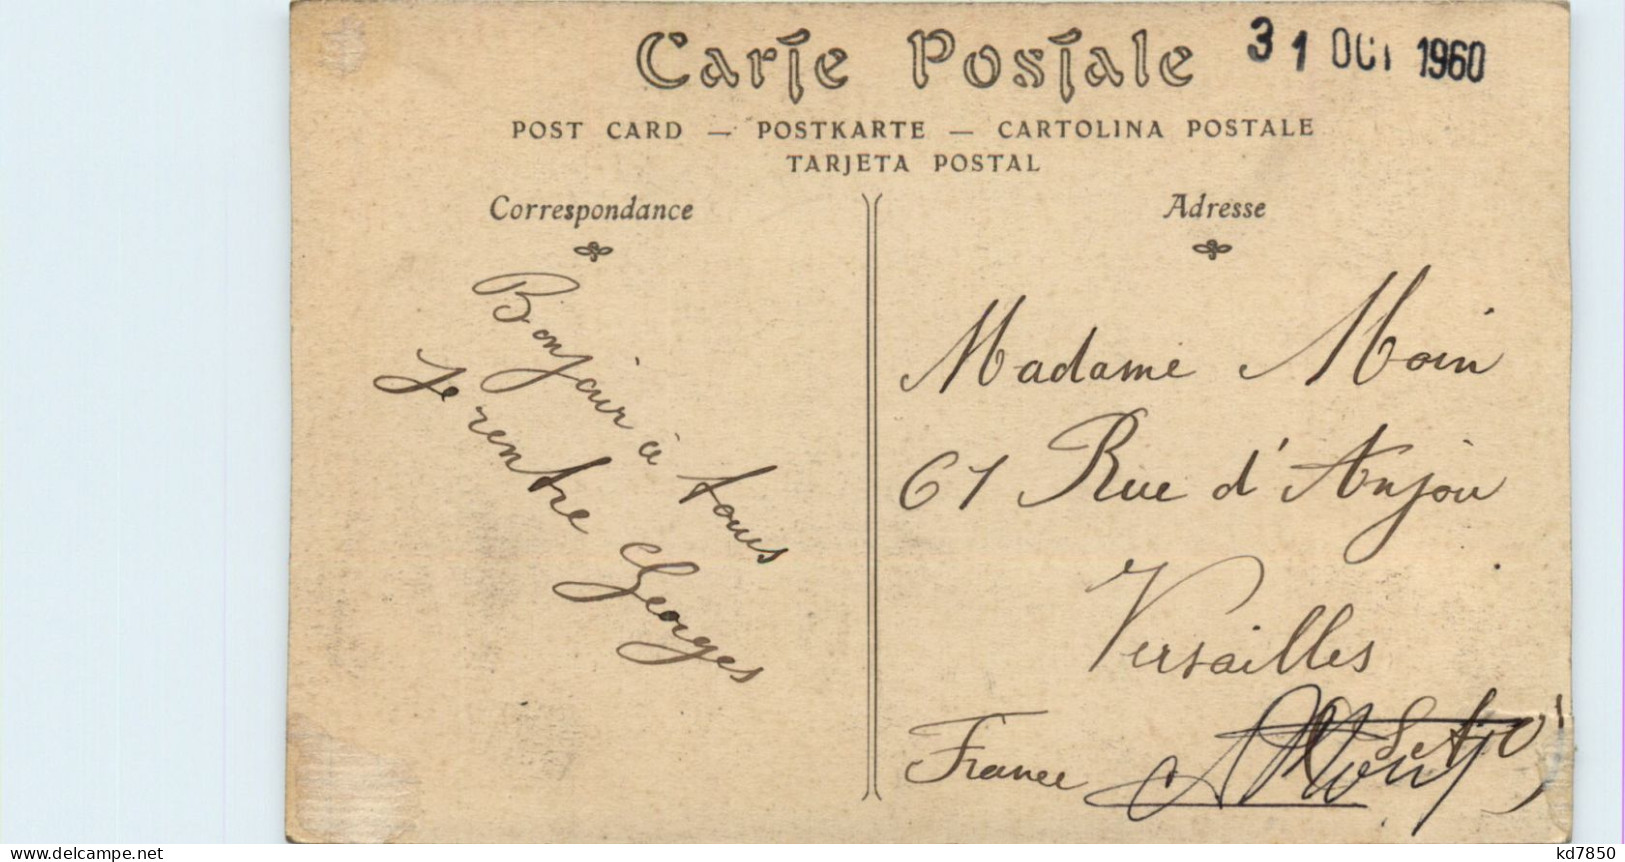 Carte Postale
31 OCT 1960
POST CARD — POSTKARTE — CARTOLINA POSTALE
TARJETA POSTAL
Correspondance
Bonjour à tous
Je rentre Georges
Adresse
Madame Moin
61 Rue d'Anjou
Versailles
France
kd7850